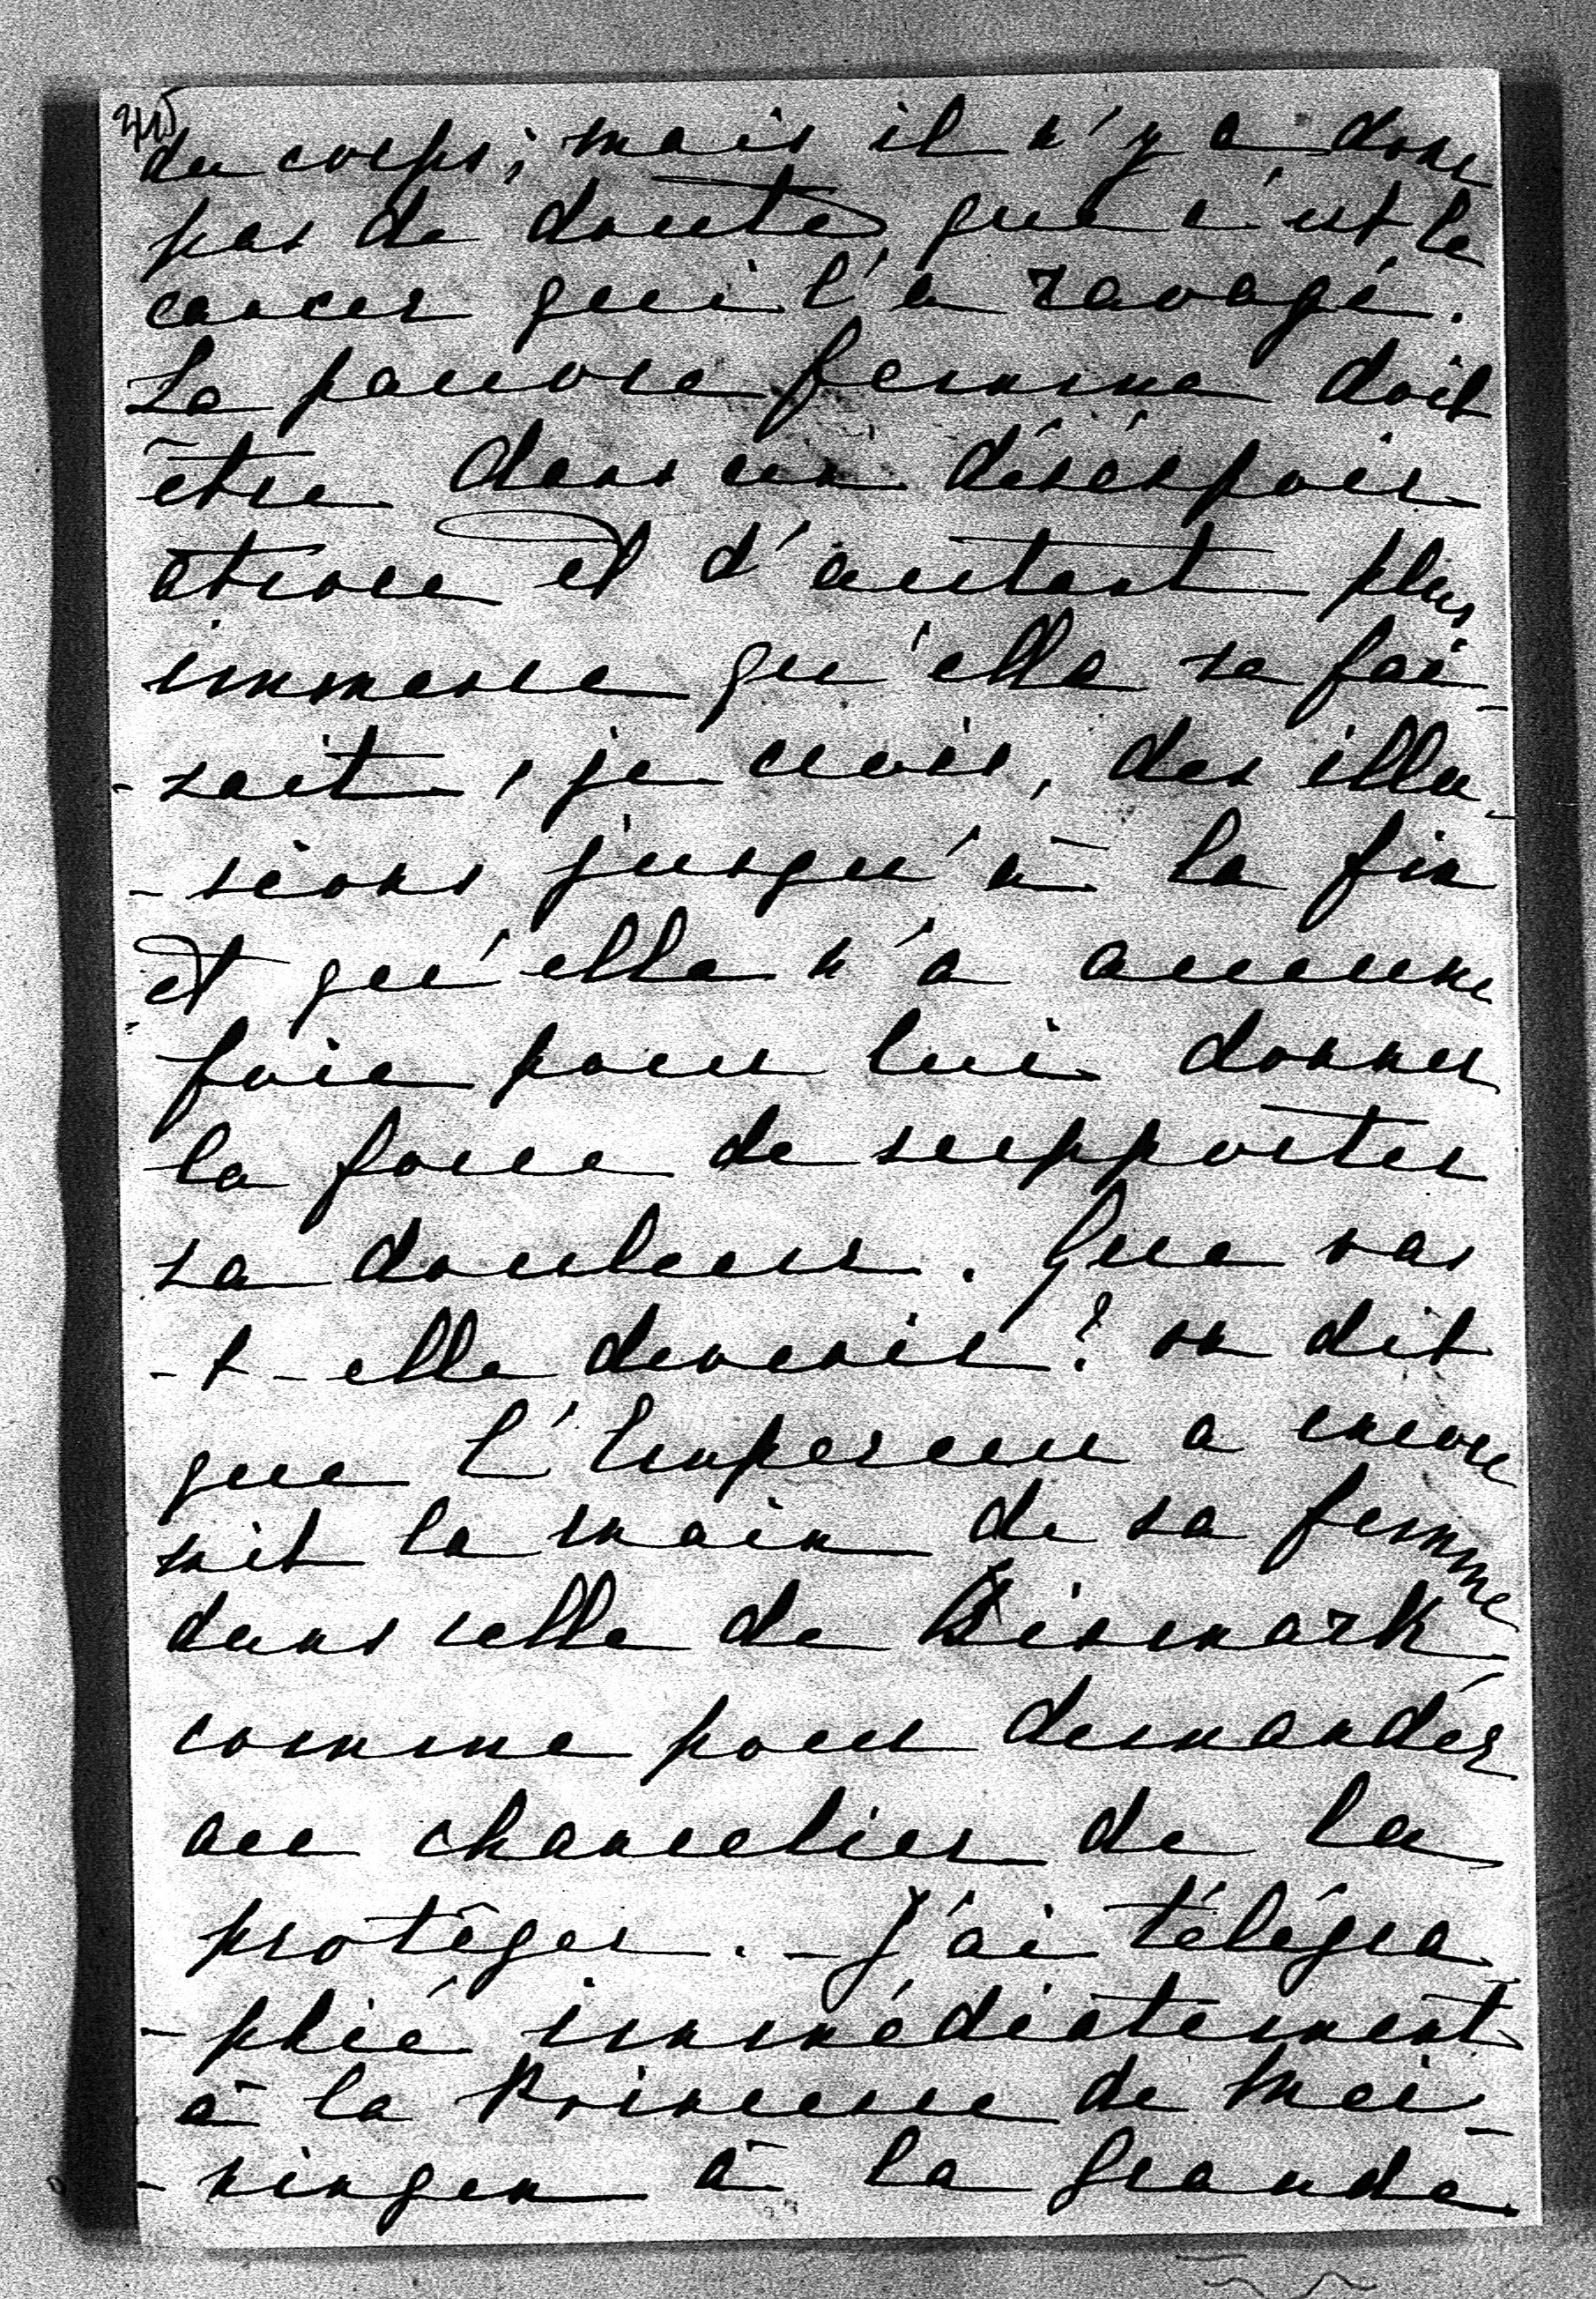 du corps; mais il n'y a donc
pas de doute, que c'est le
cancer qui l'a ravagé.
La pauvre femme doit
être dans un désespoir
atroce et d'autant plus
immense qu'elle se fai-
-sait, je crois, des illu-
-sions jusqu'à la fin
et qu'elle n'a aucune
foie pour lui donner
la force de supporter
sa douleur. Que vas
-t-elle devenir? on dit
que l'Empereur a encore
mit la main de sa femme
dans celle de Bismark
comme pour demandér
au chancelier de la
protéger. - J'ai télégra-
-phié immédiatement
à la Princesse de Mei-
-ningen à la Grande